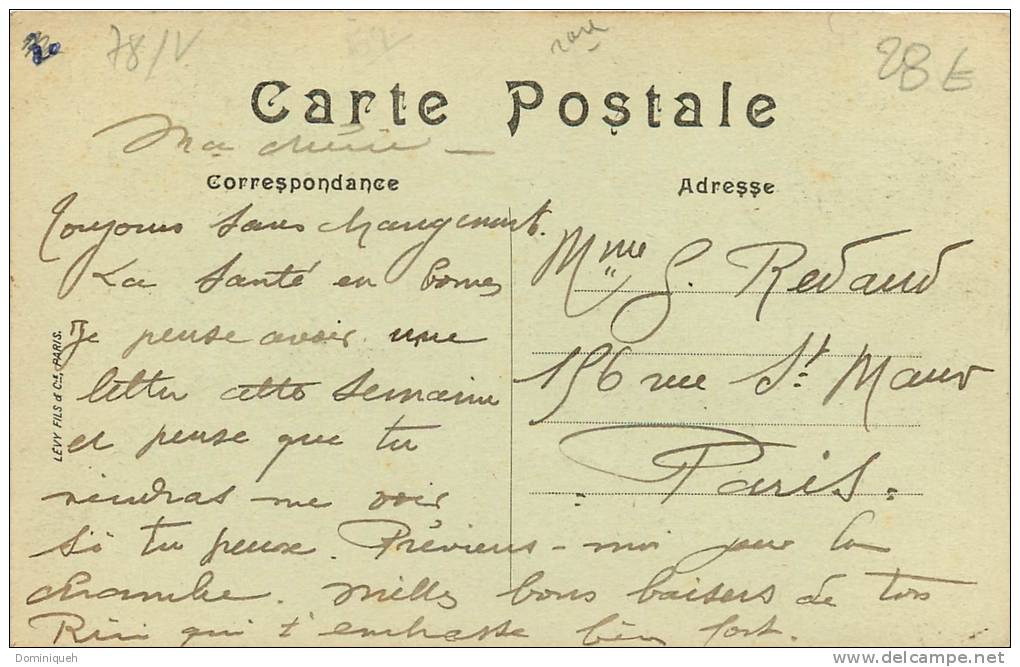 20
78/V.
rare
28 €
Carte Postale
Ma chérie —
Correspondance
Adresse
Toujours sans changement.
La santé en bonnes
Je pense avoir une
lettre cette semaine
et pense que tu
viendras me voir
si tu peux. Préviens-moi pour la
chambre. Milles bons baisers de ton
Riri qui t'embrasse bien fort.
Mme G. Redaud
156 rue St. Maur
Paris.
LEVY FILS & Cie, PARIS.
Dominiqueh
delcampe.net